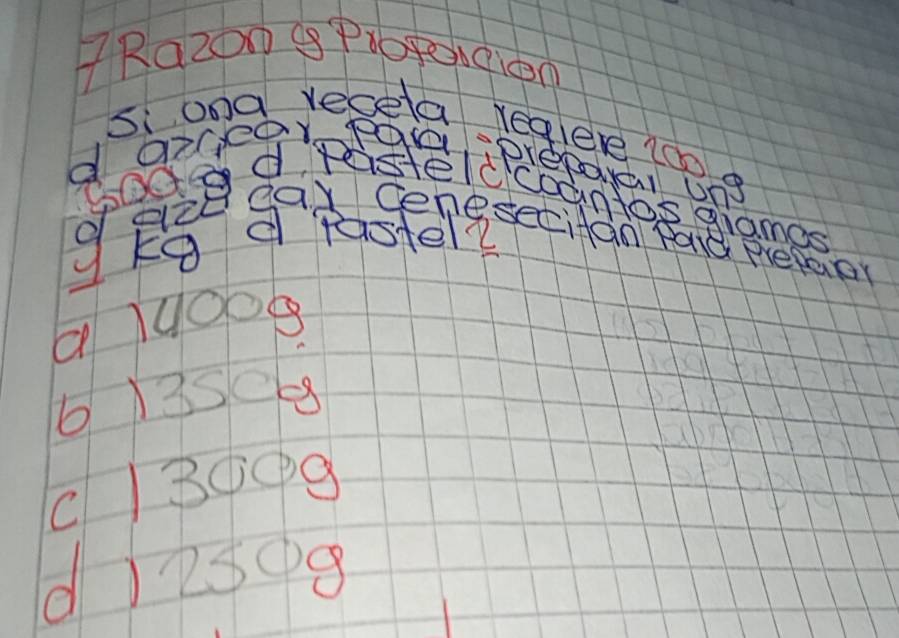 7 Razon y Proporcion
Si ona receta reqiere 200 g
d azucar para preparar un
500 g d Pastel ¿coantos glamos
d azucar cenesecitan para preparar
1 kg d Pastel?
a) 400g.
b) 350g
c) 300g
d) 250g